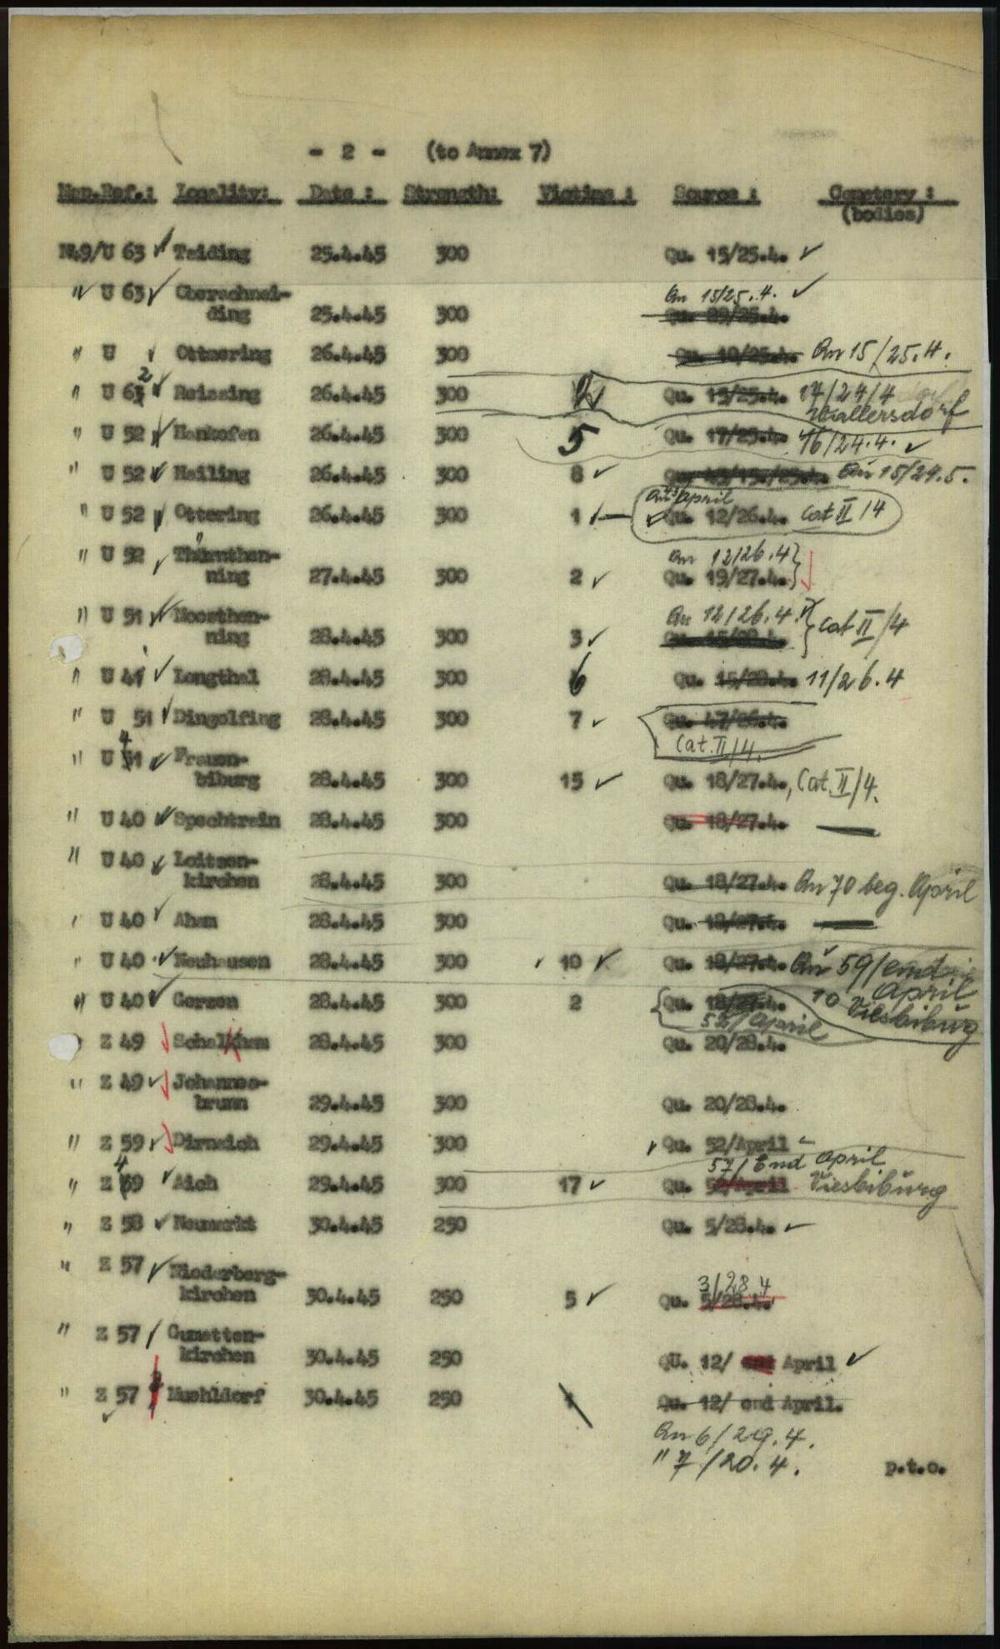 - 2 - (to Annex 7)
Map.Ref.: Locality: Date : Strength: Victims : Source : Cemetery :
(bodies)
N49/U 63 ✓ Taiding 25.4.45 300 Qu. 15/25.4. ✓
" U 63 ✓ Oberschnei- An 15/25.4. ✓
ding 25.4.45 300 Qu. 29/25.4.
" U ✓ Ottmering 26.4.45 300 Qu. 10/25.4. An 15/25.4.
2
" U 63 ✓ Reissing 26.4.45 300 2 Qu. 15/25.4. 14/24/4
Wallersdorf
" U 52 ✓ Hankofen 26.4.45 300 5 Qu. 17/25.4. 16/24.4. ✓
" U 52 ✓ Hailing 26.4.45 300 8 ✓ An 15/24.5.
April
" U 52 ✓ Ottering 26.4.45 300 1 ✓ Qu. 12/26.4. Cat II/4
" U 52 ✓ Thürnthen- An 12/26.4
ning 27.4.45 300 2 ✓ Qu. 19/27.4.
" U 51 ✓ Moosthen- An 12/26.4. Cat II/4
ning 28.4.45 300 3 ✓
" U 41 ✓ Lengthal 28.4.45 300 6 Qu. 15/28.4. 11/26.4
" U 51 ✓ Dingolfing 28.4.45 300 7 ✓ Qu. 47/26.4.
Cat. II/4.
4
" U 51 ✓ Frauen-
biburg 28.4.45 300 15 ✓ Qu. 18/27.4., Cat. II/4.
" U 40 ✓ Spechtrain 28.4.45 300 Qu. 18/27.4. —
" U 40 ✓ Loitzen-
kirchen 28.4.45 300 Qu. 18/27.4. An 70 beg. April
" U 40 ✓ Aham 28.4.45 300 Qu. 18/27.4. —
" U 40 ✓ Neuhausen 28.4.45 300 10 ✓ Qu. 18/27.4. An 59/end
10 April
" U 40 ✓ Gerzen 28.4.45 300 2 Qu. 18/27.4. Viesbiburg
52/April
" Z 49 Schalkham 28.4.45 300 Qu. 20/28.4.
" Z 49 ✓ Johannes-
brunn 29.4.45 300 Qu. 20/28.4.
" Z 59 ✓ Dirnaich 29.4.45 300 ✓ Qu. 52/April
4 57/End April
" Z 69 ✓ Aich 29.4.45 300 17 ✓ Qu. 52/April Viesbiburg
" Z 58 ✓ Neumarkt 30.4.45 250 Qu. 5/28.4. ✓
" Z 57 ✓ Niederberg- 3/28.4
kirchen 30.4.45 250 5 ✓ Qu. 5/28.4.
" Z 57 / Gumatten-
kirchen 30.4.45 250 QU. 12/ end April ✓
" Z 57 Muehldorf 30.4.45 250 1 Qu. 12/ end April.
An 6/29.4.
" 7/20.4. p.t.o.